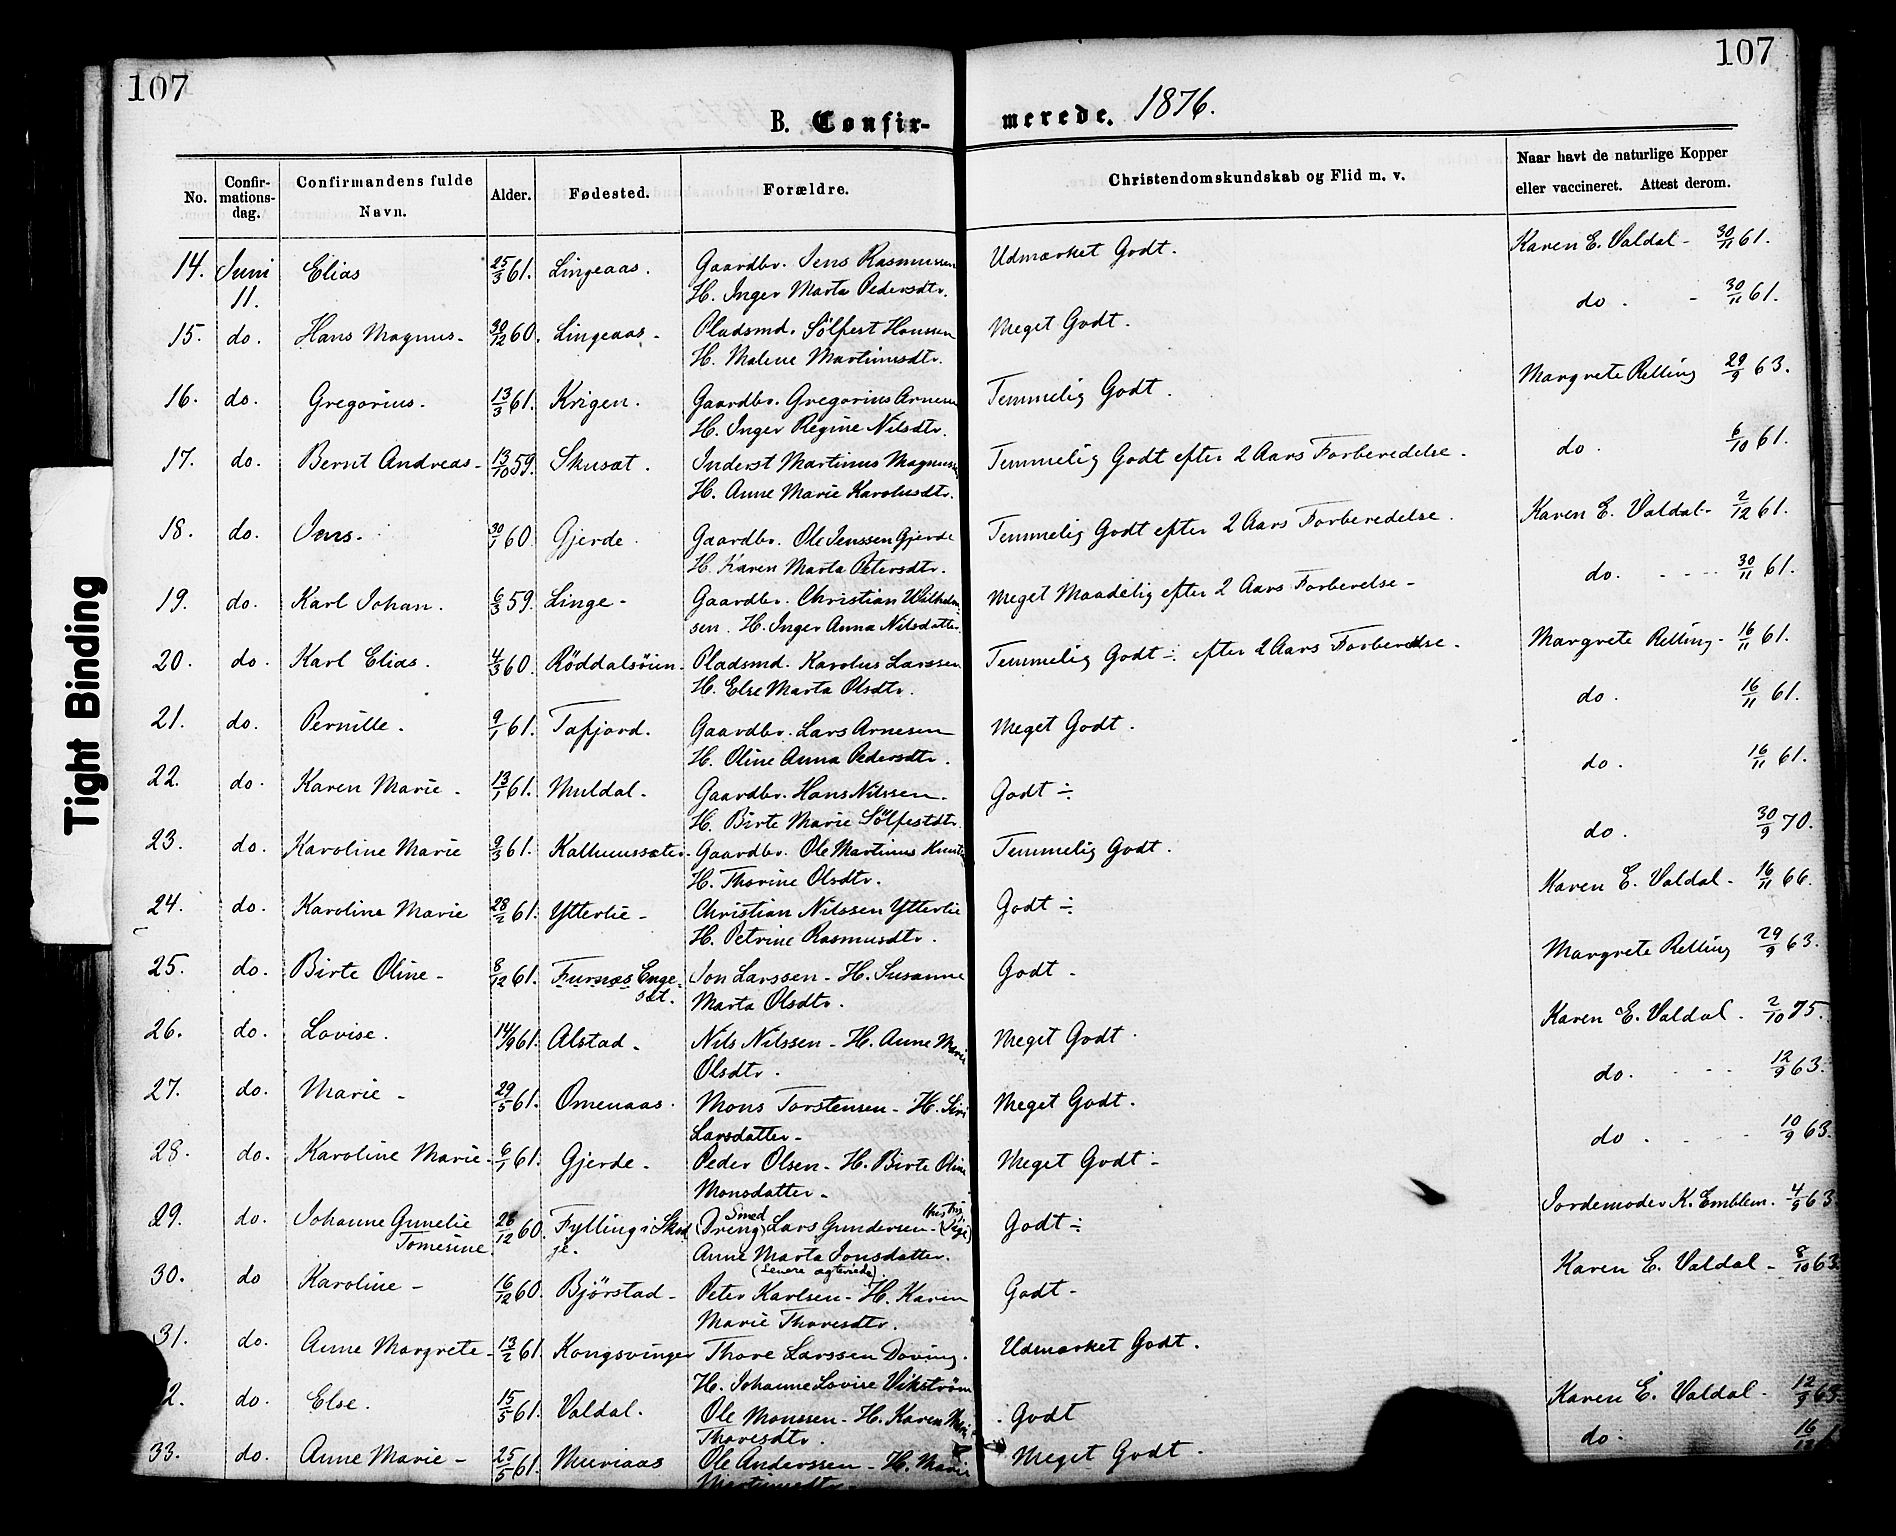 107
107
B. Confir-
merede. 1876.
No.
Confir-
mations-
dag.
Confirmandens fulde
Navn.
Alder.
Fødested.
Forældre.
Christendomskundskab og Flid m. v.
Naar havt de naturlige Kopper
eller vaccineret. Attest derom.
14. Juni 11. Elias 25/3 61. Lingeaas. Gaardbr. Jens Rasmussen Udmærket Godt. Karen E. Valdal - 30/11 61.
H. Inger Marta Pedersdtr.
15. do. Hans Magnus - 30/12 60. Lingeaas - Pladsmd. Sölfest Hanssen Meget Godt. do. - 30/11 61.
H. Malene Martinusdtr.
16. do. Gregorius. 13/3 61. Krigen. Gaardbr. Gregorius Arnesen Temmelig Godt. Margrete Relling 29/9 63.
H. Inger Regine Nilsdtr.
17. do. Bernt Andreas - 13/10 59. Skusæt. Inderst Martinus Magnussen Temmelig Godt efter 2 Aars Forberedelse. do. 6/10 61.
H. Anne Marie Karolusdtr.
18. do. Jens. 30/1 60 Gjerde. Gaardbr. Ole Jenssen Gjerde Temmelig Godt efter 2 Aars Forberedelse. Karen E. Valdal - 2/12 61.
H. Karen Marta Petersdtr.
19. do. Karl Johan. 6/3 59. Linge - Gaardbr. Christian Wilhelm- Meget Maadelig efter 2 Aars Forberelse - do. - - - 30/11 61.
sen. H. Inger Anna Nilsdatter.
20. do. Karl Elias. 4/3 60. Röddalsöien. Pladsmd. Karolus Larssen Temmelig Godt ÷. efter 2 Aars Forberedelse. Margrete Relling. 16/11 61.
H. Else Marta Olsdtr.
21. do. Pernille. 9/1 61. Tafjord. Gaardbr. Lars Arnesen Meget Godt. do. 16/11 61.
H. Oline Anna Pedersdtr.
22. do. Karen Marie - 13/1 61. Muldal. Gaardbr. Hans Nilssen. Godt ÷. do. 16/11 61.
H. Birte Marie Sölfestdtr.
23. do. Karoline Marie 9/3 61. Kalhuussæter. Gaardbr. Ole Martinus Temmelig Godt. do. 30/9 70.
H. Thorine Olsdtr.
24. do. Karoline Marie 28/2 61. Ytterlie - Christian Nilssen Ytterlie Godt ÷. Karen E. Valdal - 16/11 66.
H. Petrine Rasmusdtr.
25. do. Birte Oline - 8/12 61. Furnæs Enge- Jon Larssen - H. Susanne Godt - Margrete Relling 29/9 63.
sæt. Marta Olsdtr.
26. do. Lovise. 14/9 61. Alstad - Nils Nilssen - H. Anne Marie Meget Godt. Karen E. Valdal - 2/10 75.
Olsdtr.
27. do. Marie - 29/5 61. Omenaas. Mons Torstensen - H. Siri Meget Godt. do. - - - 12/9 63.
Larsdatter -
28. do. Karoline Marie - 6/1 61. Gjerde - Peder Olsen - H. Birte Oline Meget Godt - do. - - 10/9 63.
Monsdatter -
29. do. Johanne Gunelie 28/12 60. Fylling i Skod- Smed (Dreng) Lars Gundersen - Hustru (Pige) Godt ÷ Jordemoder K. Emblem. 4/9 63
Tomesine je. Anne Marta Jonsdatter.
(Senere ægteviede).
30. do Karoline - 16/12 60. Bjørstad - Peter Karlsen - H. Karen Godt - Karen E. Valdal - 8/10 63.
Marie Thoresdtr.
31. do. Anne Margrete - 13/2 61. Kongsvinger Thore Larssen Döving. Udmærket Godt.
H. Johanne Lovise Vikström
2. do. Else. 15/5 61. Valdal. Ole Monssen - H. Karen Mari Godt Karen E. Valdal - 12/9 63.
Thoresdtr.
33. do. Anne Marie - 25/5 61. Muriaas Ole Anderssen - H. Marie Meget Godt. do. 16/
Tight Binding